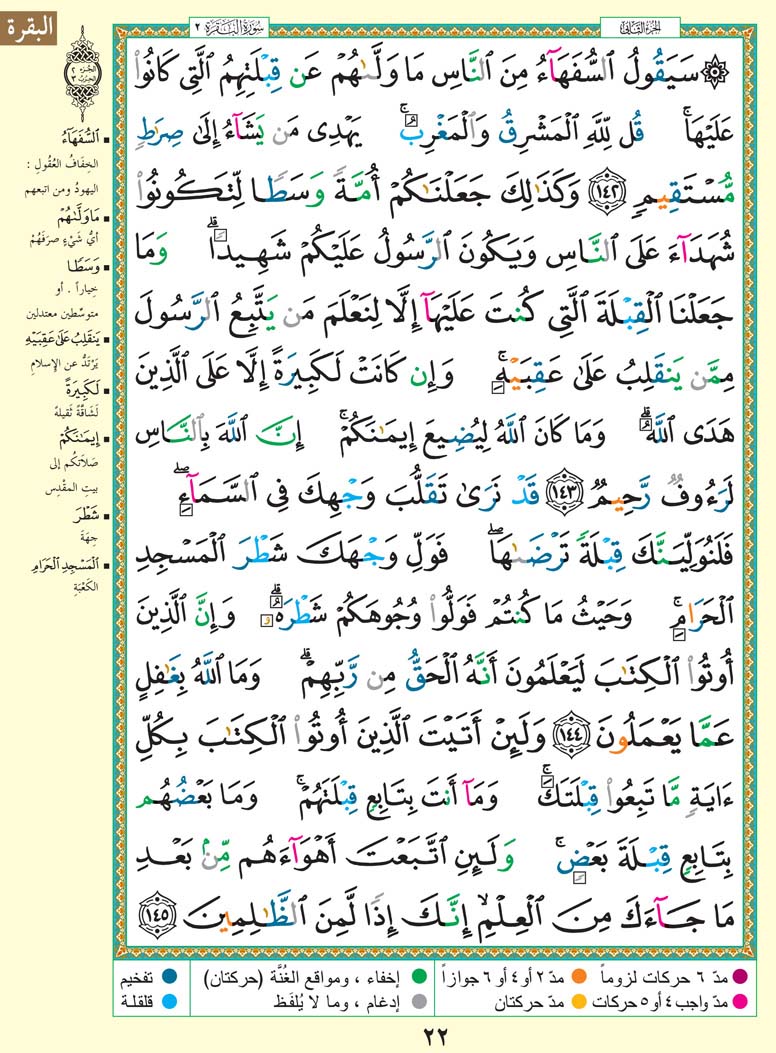 البقرة
سُورَةُ البَقَرَة ٢
الجزء الثاني
۞ سَيَقُولُ ٱلسُّفَهَآءُ مِنَ ٱلنَّاسِ مَا وَلَّىٰهُمْ عَن قِبْلَتِهِمُ ٱلَّتِى كَانُوا۟
عَلَيْهَا ۚ قُل لِّلَّهِ ٱلْمَشْرِقُ وَٱلْمَغْرِبُ ۚ يَهْدِى مَن يَشَآءُ إِلَىٰ صِرَٰطٍ
مُّسْتَقِيمٍ ١٤٢ وَكَذَٰلِكَ جَعَلْنَٰكُمْ أُمَّةً وَسَطًا لِّتَكُونُوا۟
شُهَدَآءَ عَلَى ٱلنَّاسِ وَيَكُونَ ٱلرَّسُولُ عَلَيْكُمْ شَهِيدًا ۗ وَمَا
جَعَلْنَا ٱلْقِبْلَةَ ٱلَّتِى كُنتَ عَلَيْهَآ إِلَّا لِنَعْلَمَ مَن يَتَّبِعُ ٱلرَّسُولَ
مِمَّن يَنقَلِبُ عَلَىٰ عَقِبَيْهِ ۚ وَإِن كَانَتْ لَكَبِيرَةً إِلَّا عَلَى ٱلَّذِينَ
هَدَى ٱللَّهُ ۗ وَمَا كَانَ ٱللَّهُ لِيُضِيعَ إِيمَٰنَكُمْ ۚ إِنَّ ٱللَّهَ بِٱلنَّاسِ
لَرَءُوفٌ رَّحِيمٌ ١٤٣ قَدْ نَرَىٰ تَقَلُّبَ وَجْهِكَ فِى ٱلسَّمَآءِ ۖ
فَلَنُوَلِّيَنَّكَ قِبْلَةً تَرْضَىٰهَا ۚ فَوَلِّ وَجْهَكَ شَطْرَ ٱلْمَسْجِدِ
ٱلْحَرَامِ ۚ وَحَيْثُ مَا كُنتُمْ فَوَلُّوا۟ وُجُوهَكُمْ شَطْرَهُۥ ۗ وَإِنَّ ٱلَّذِينَ
أُوتُوا۟ ٱلْكِتَٰبَ لَيَعْلَمُونَ أَنَّهُ ٱلْحَقُّ مِن رَّبِّهِمْ ۗ وَمَا ٱللَّهُ بِغَٰفِلٍ
عَمَّا يَعْمَلُونَ ١٤٤ وَلَئِنْ أَتَيْتَ ٱلَّذِينَ أُوتُوا۟ ٱلْكِتَٰبَ بِكُلِّ
ءَايَةٍ مَّا تَبِعُوا۟ قِبْلَتَكَ ۚ وَمَآ أَنتَ بِتَابِعٍ قِبْلَتَهُمْ ۚ وَمَا بَعْضُهُم
بِتَابِعٍ قِبْلَةَ بَعْضٍ ۚ وَلَئِنِ ٱتَّبَعْتَ أَهْوَآءَهُم مِّنۢ بَعْدِ
مَا جَآءَكَ مِنَ ٱلْعِلْمِ ۙ إِنَّكَ إِذًا لَّمِنَ ٱلظَّٰلِمِينَ ١٤٥
ٱلسُّفَهَآءُ
الخِفَافُ العُقُولِ :
اليهودُ ومن اتبعهم
مَا وَلَّىٰهُمْ
أيُّ شَيْءٍ صرَفَهُمْ
وَسَطًا
خِياراً . أو
متوسِّطين معتدلين
يَنقَلِبُ عَلَىٰ عَقِبَيْهِ
يَرْتَدُّ عن الإسلامِ
لَكَبِيرَةً
لَشَاقَّةً ثقيلةً
إِيمَٰنَكُمْ
صَلَاتَكُم إلى
بيتِ المقْدِس
شَطْرَ
جِهَةَ
ٱلْمَسْجِدِ ٱلْحَرَامِ
الكَعْبَةِ
مدّ ٦ حركات لزوماً
مدّ ٢ أو ٤ أو ٦ جوازاً
إخفاء ، ومواقع الغُنَّة (حركتان)
تفخيم
مدّ واجب ٤ أو ٥ حركات
مدّ حركتان
إدغام ، وما لا يُلفَظ
قلقلة
٢٢